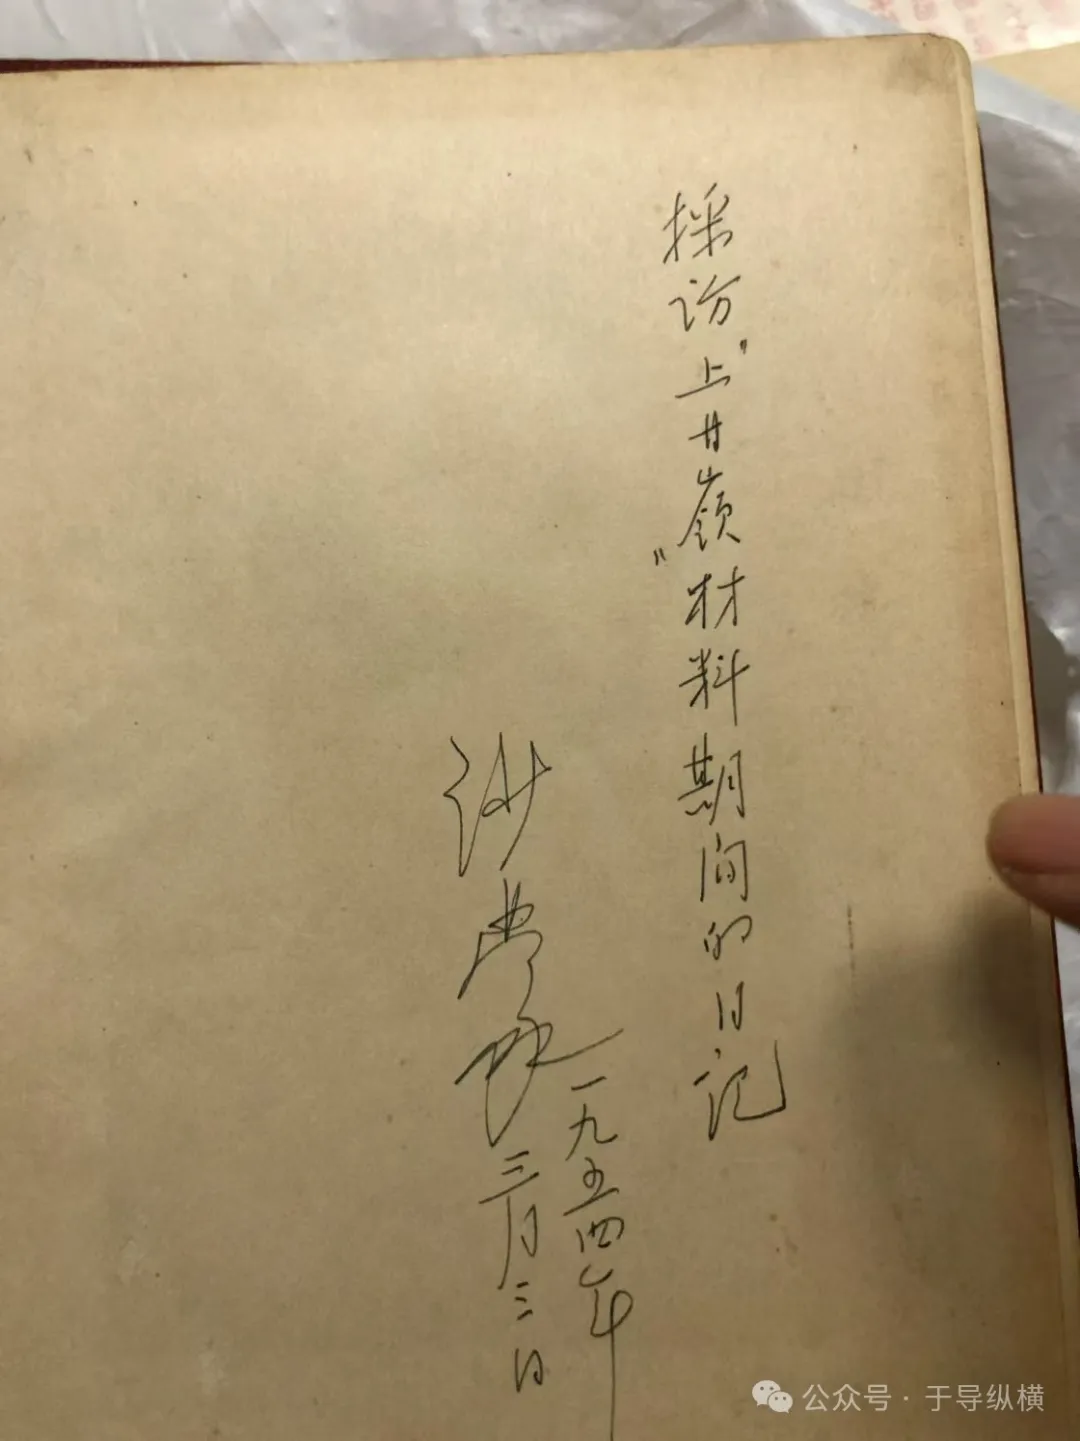 採访"上甘嶺"材料期间的日记
一九五四年
三月三日
公众号 · 于导纵横